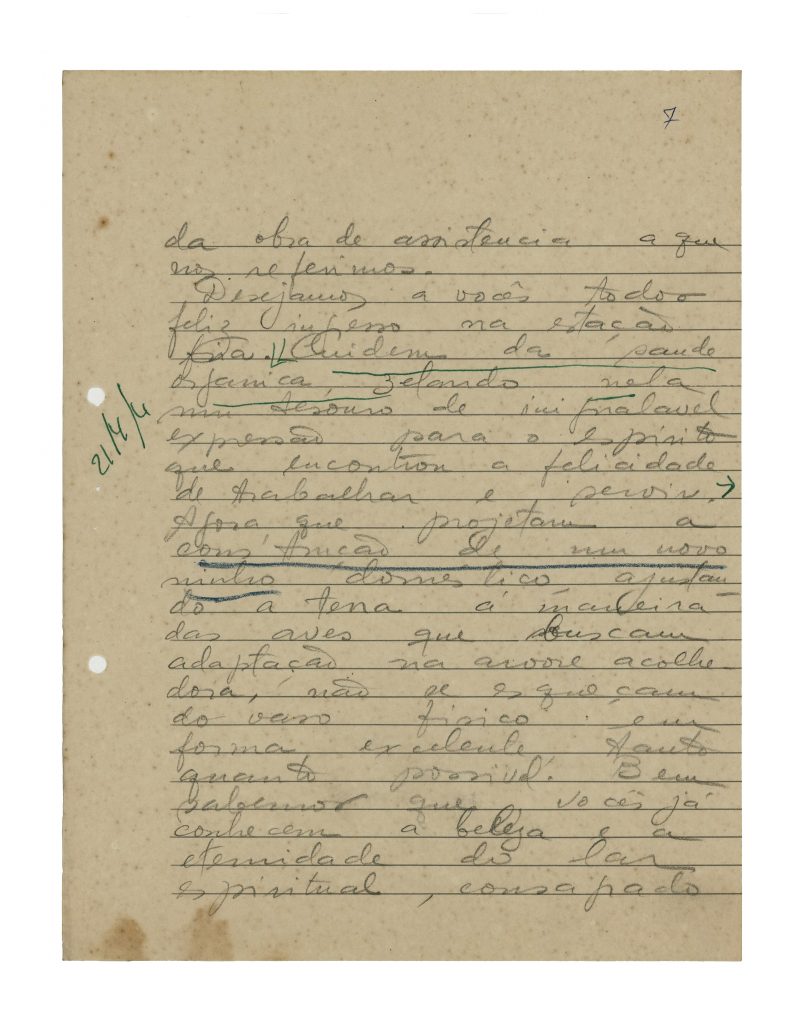 7
da obra de assistencia a que
nos referimos.
Desejamos a vocês todo o
feliz ingresso na estação
fria. Cuidem da saude
organica, zelando nela
um tesouro de inigualavel
expressão para o espirito
que encontrou a felicidade
de trabalhar e servir.
Agora que projetam a
construção de um novo
ninho domestico ajustan-
do a terra á maneira
das aves que buscam
adaptação na arvore acolhe-
dora, não se esqueçam
do vaso fisico em
forma excelente tanto
quanto possivel. Bem
sabemos que vocês já
conhecem a beleza e a
eternidade do lar
espiritual, consagrado